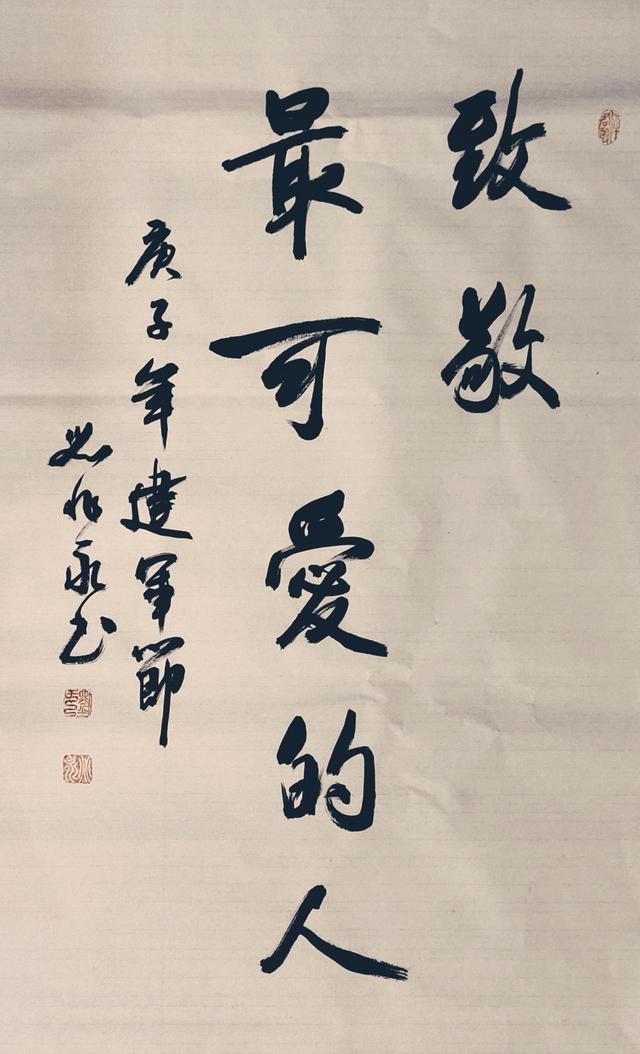 致敬
最可愛的人
庚子年建軍節
永书